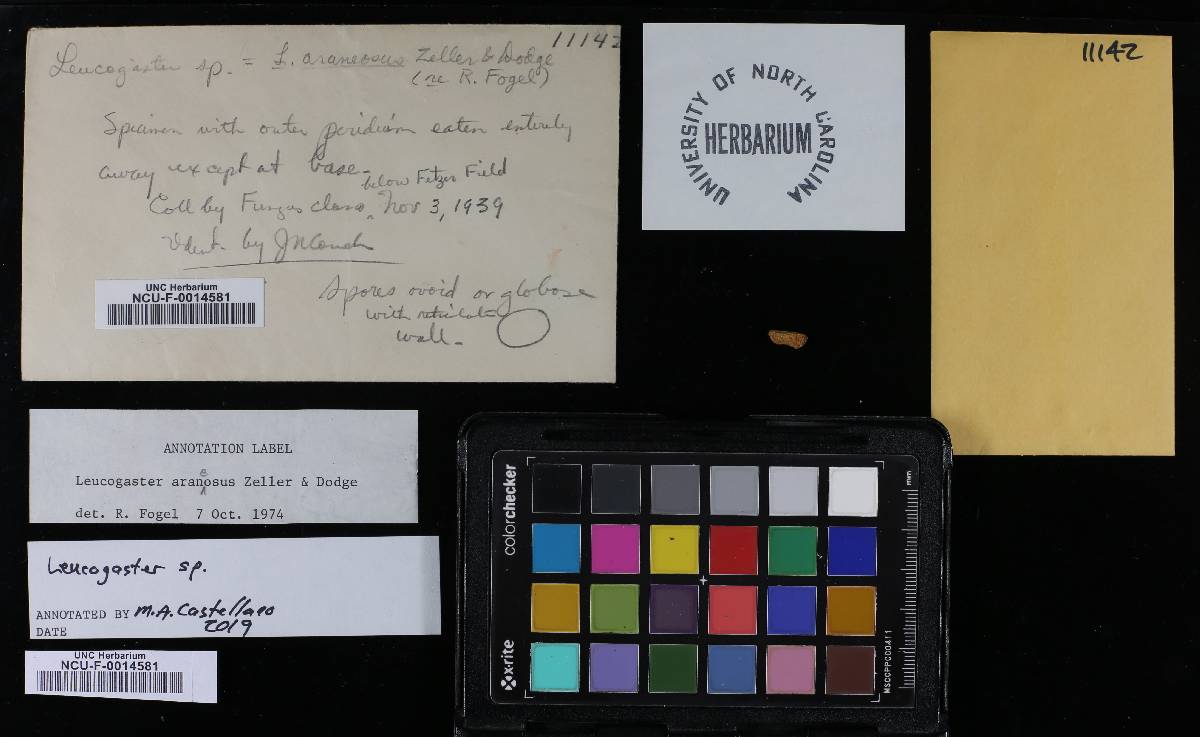 11142
Leucogaster sp. = L. araneosus Zeller & Dodge
(fide R. Fogel)
Specimen with outer peridium eaten entirely
away except at base-
below Fetzer Field
Coll by Fungus class ^ Nov 3, 1939
Ident. by JNCouch
UNC Herbarium
NCU-F-0014581
Spores ovoid or globose
with reticulate
wall.
UNIVERSITY OF NORTH CAROLINA
HERBARIUM
11142
ANNOTATION LABEL
e
Leucogaster aranosus Zeller & Dodge
det. R. Fogel 7 Oct. 1974
Leucogaster sp.
ANNOTATED BY M.A. Castellano
DATE 2019
UNC Herbarium
NCU-F-0014581
colorchecker
x·rite
mm
MSCCPPCC0411